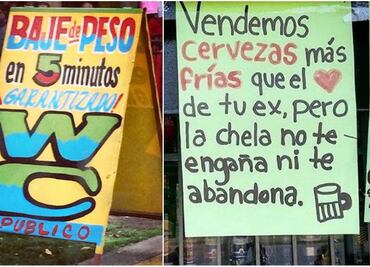 BAJE de PESO
en 5 minutos
GARANTIZADO!
WC
PUBLICO
Vendemos
cervezas más
frías que el
de tu ex, pero
la chela no te
engaña ni te
abandona.